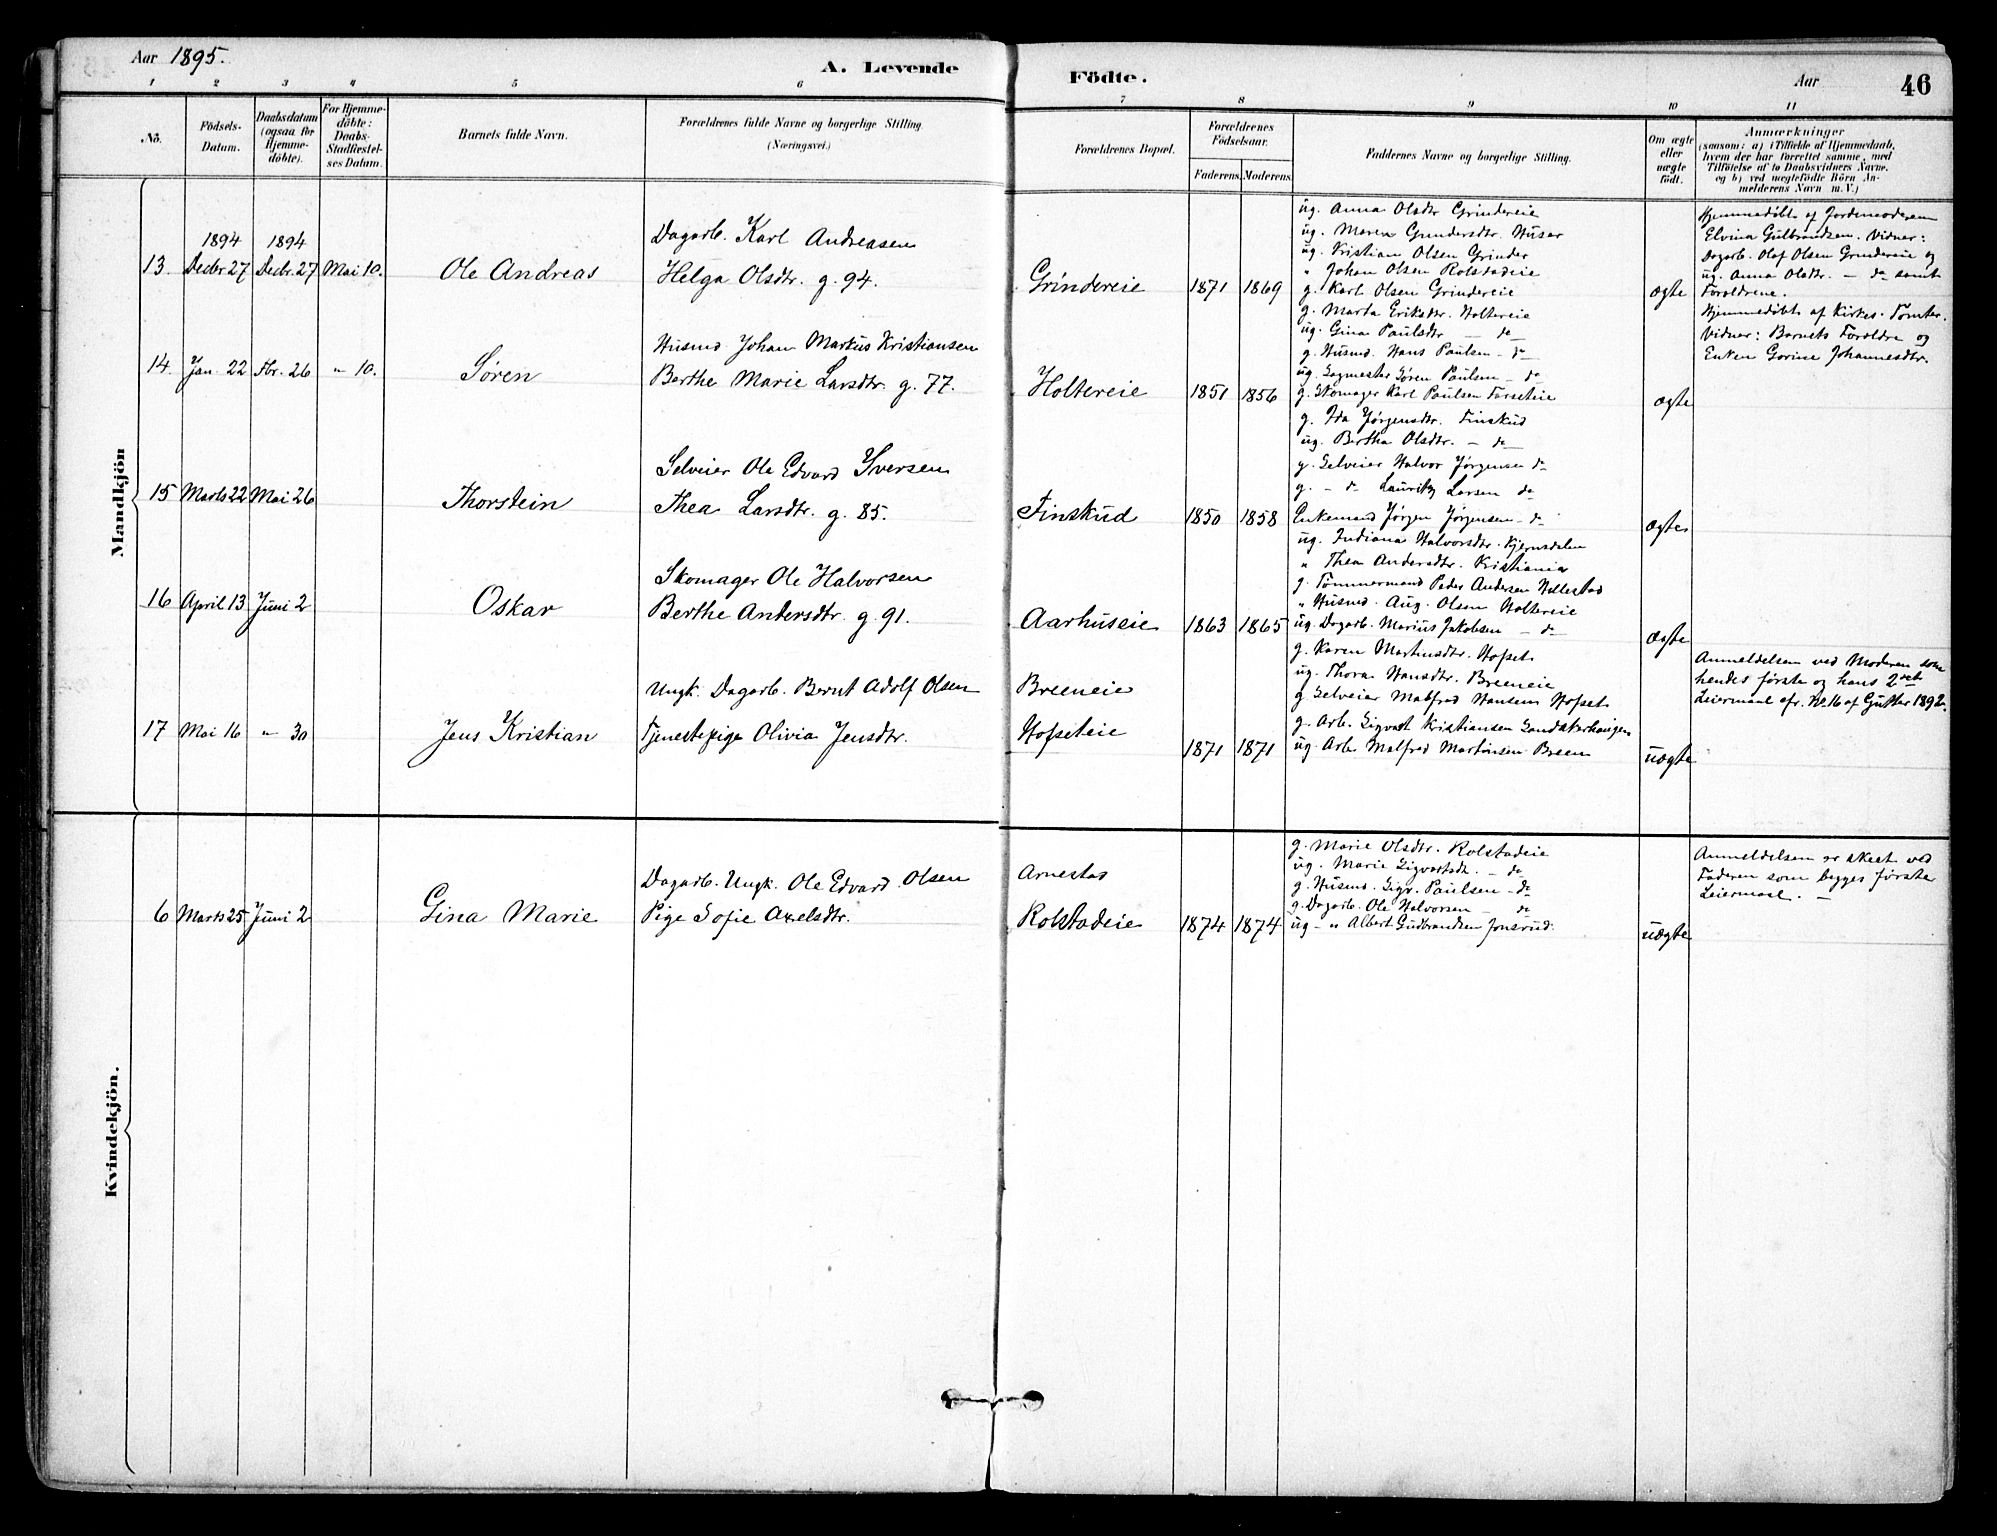 Aar 1895.
A. Levende Födte.
Aar 46
1 2 3 4 5 6 7 8 9 10 11
No.
Födsels-Datum.
Daabsdatum (ogsaa for Hjemmedöbte).
For Hjemmedöbte: Daabs-Stadfestelses Datum.
Barnets fulde Navn.
Forældrenes fulde Navne og borgerlige Stilling.
(Næringsvei.)
Forældrenes Bopæl.
Forældrenes Födselsaar.
Faderens. Moderens.
Faddernes Navne og borgerlige Stilling.
Om ægte eller uægte födt.
Anmærkninger
(saasom: a) i Tilfælde af Hjemmedaab,
hvem der har forrettet samme, med
Tilföielse af to Daabsvidners Navne.
og b) ved uægtefödte Börn An-
melderens Navn m. V.)
Mandkjön
13. 1894 Decbr 27 1894 Decbr. 27 Mai 10.
Ole Andreas
Dagarb. Karl Andreasen
Helga Olsdtr. g. 94.
Grindereie 1871 1869
ug. Anna Olsdtr Grindereie
ug. Maren Gundersdtr. Huser
ug. Kristian Olsen Grinder
" Johan Olsen Rolstadeie
g. Karl Olsen Grindereie
ægte
Hjemmedøbt af Jordemoderen
Elvina Gulbrandsen. Vidner:
Dagarb. Olaf Olsen Grindereie og
ug. Anna Olsdtr. – do samt
Forældrene.
14. Jan. 22 Fbr. 26 " 10.
Søren
Husmd Johan Markus Kristiansen
Berthe Marie Larsdtr. g. 77.
Holtereie 1851 1856
g. Marta Eriksdtr. Holtereie
ug. Gina Paulsdtr – do –
g. Husmd. Hans Paulsen – do
ug. Sagmester Søren Paulsen – do
g. Skomager Karl Paulsen Fosseteie
ægte
Hjemmedøbt af Kirkes. Tomter.
Vidner: Barnets Forældre og
Enken Gorine Johannesdtr.
15 Marts 22 Mai 26
Thorstein
Selveier Ole Edvard Iversen
Thea Larsdtr. g. 85.
Finskud 1850 1858
g. Ida Jørgensdtr. Finskud
ug. Bertha Olsdtr. – do –
g. Selveier Halvor Jørgensen do
g. – do Lauritz Larsen do
Enkemand Jørgen Jørgensen – do
ægte
16 April 13 Juni 2
Oskar
Skomager Ole Halvorsen
Berthe Andersdtr. g. 91.
Aarhuseie 1863 1865
ug. Indiana Halvorsdtr. Kjernsdalen
" Thea Andersdtr. Kristiania
g. Tømmermand Peder Andersen Hellestad
" Husmd. Aug. Olsen Holtereie
ug. Dagarb. Marius Jakobsen – do
ægte
17 Mai 16 " 30
Jens Kristian
Ungk. Dagarb. Bernt Adolf Olsen
Tjenestepige Olivia Jensdtr.
Breeneie
Hofseteie
1871 1871
g. Karen Martinsdtr. Hofset
ug. Thora Hansdtr. Breeneie
g Selveier Malfred Hansen Hofset
g. Arb. Sigvart Kristiansen Sandakerhaugen
ug. Arb. Malfred Martinsen Breen
uægte
Anmeldelsen ved Moderen som
hendes første og hans 2det
Leiermaal cfr. No. 16 af Gutter 1892.
Kvindekjön.
6 Marts 25 Juni 2
Gina Marie
Dagarb. Ungk. Ole Edvard Olsen
Pige Sofie Axelsdtr.
Arnestad
Rolstadeie
1874 1874
g. Marie Olsdtr. Rolstadeie
ug. Marie Sigvartsdtr. – do
g. Husmd. Sigv. Paulsen – do
g. Dagarb. Ole Halvorsen – do
ug – " Albert Gudbrandsen Jonsrud.
uægte
Anmeldelsen er skeet ved
Faderen som begges første
Leiermaal. –